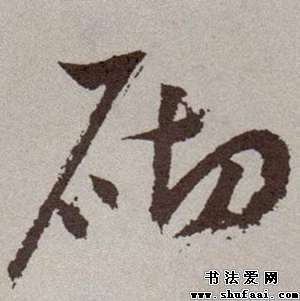 砌
书法爱网
www.shufaai.com